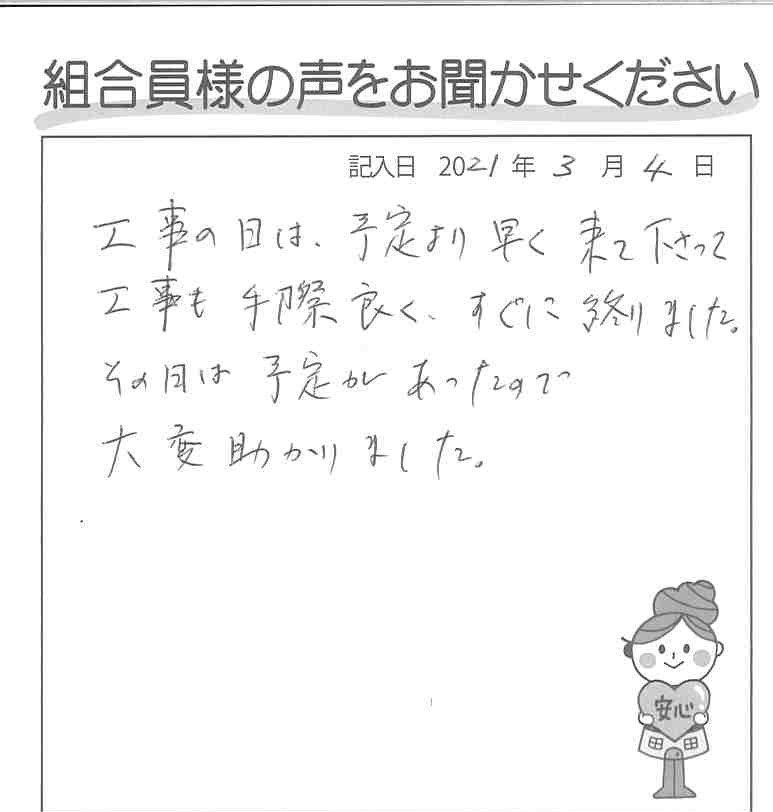 組合員様の声をお聞かせください
記入日 2021年 3月 4日
工事の日は、予定より早く来て下さって
工事も手際良く、すぐに終りました。
その日は予定があったので
大変助かりました。
安心